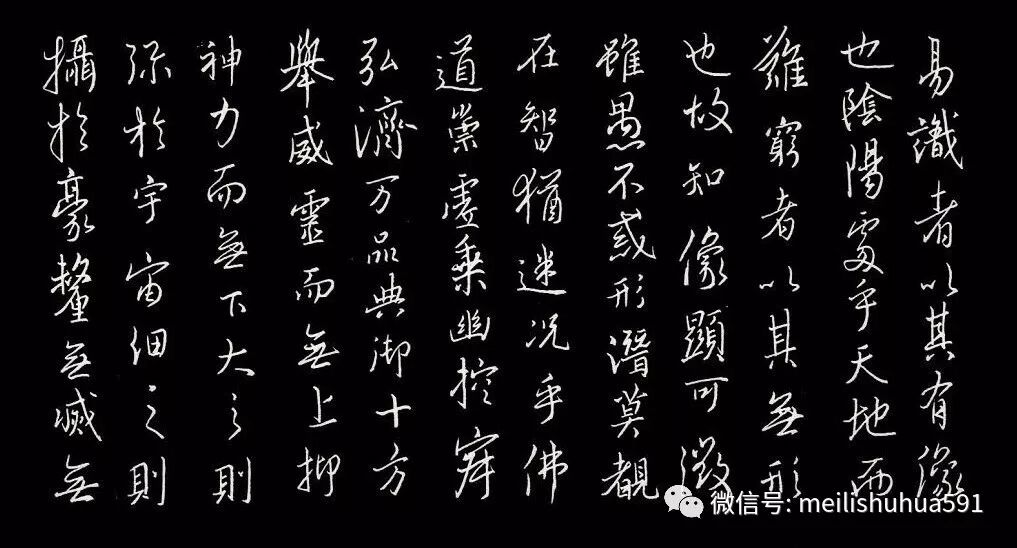 易識者以其有像
也陰陽處乎天地而
難窮者以其無形
也故知像顯可徵
雖愚不惑形潛莫覩
在智猶迷況乎佛
道崇虛乘幽控寂
弘濟万品典御十方
舉威靈而無上抑
神力而無下大之則
弥於宇宙細之則
攝於豪釐無滅無
微信号: meilishuhua591